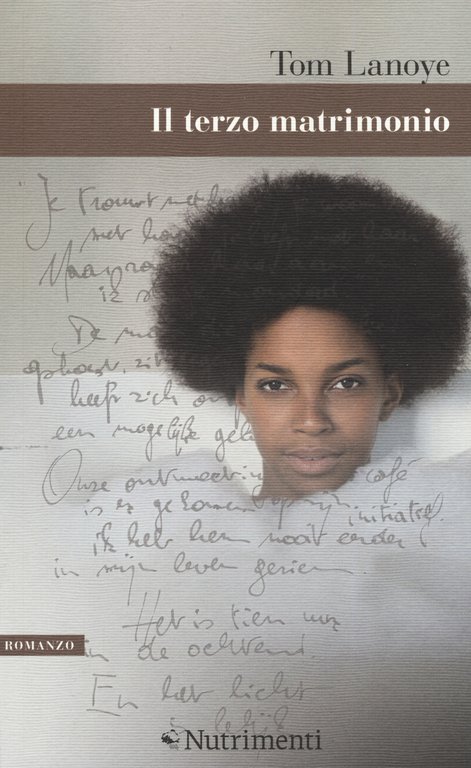 Tom Lanoye
Il terzo matrimonio
"Je trouwt met
met haar
Maar
ik
De
ophoest, zit
heeft zich
een mogelijke
Onze ontmoeting café
is er gekomen op mijn initiatief.
ik heb hem nooit eerder
in mijn leven gezien.
Het is tien uur
ROMANZO
in de ochtend
En het licht
is
Nutrimenti